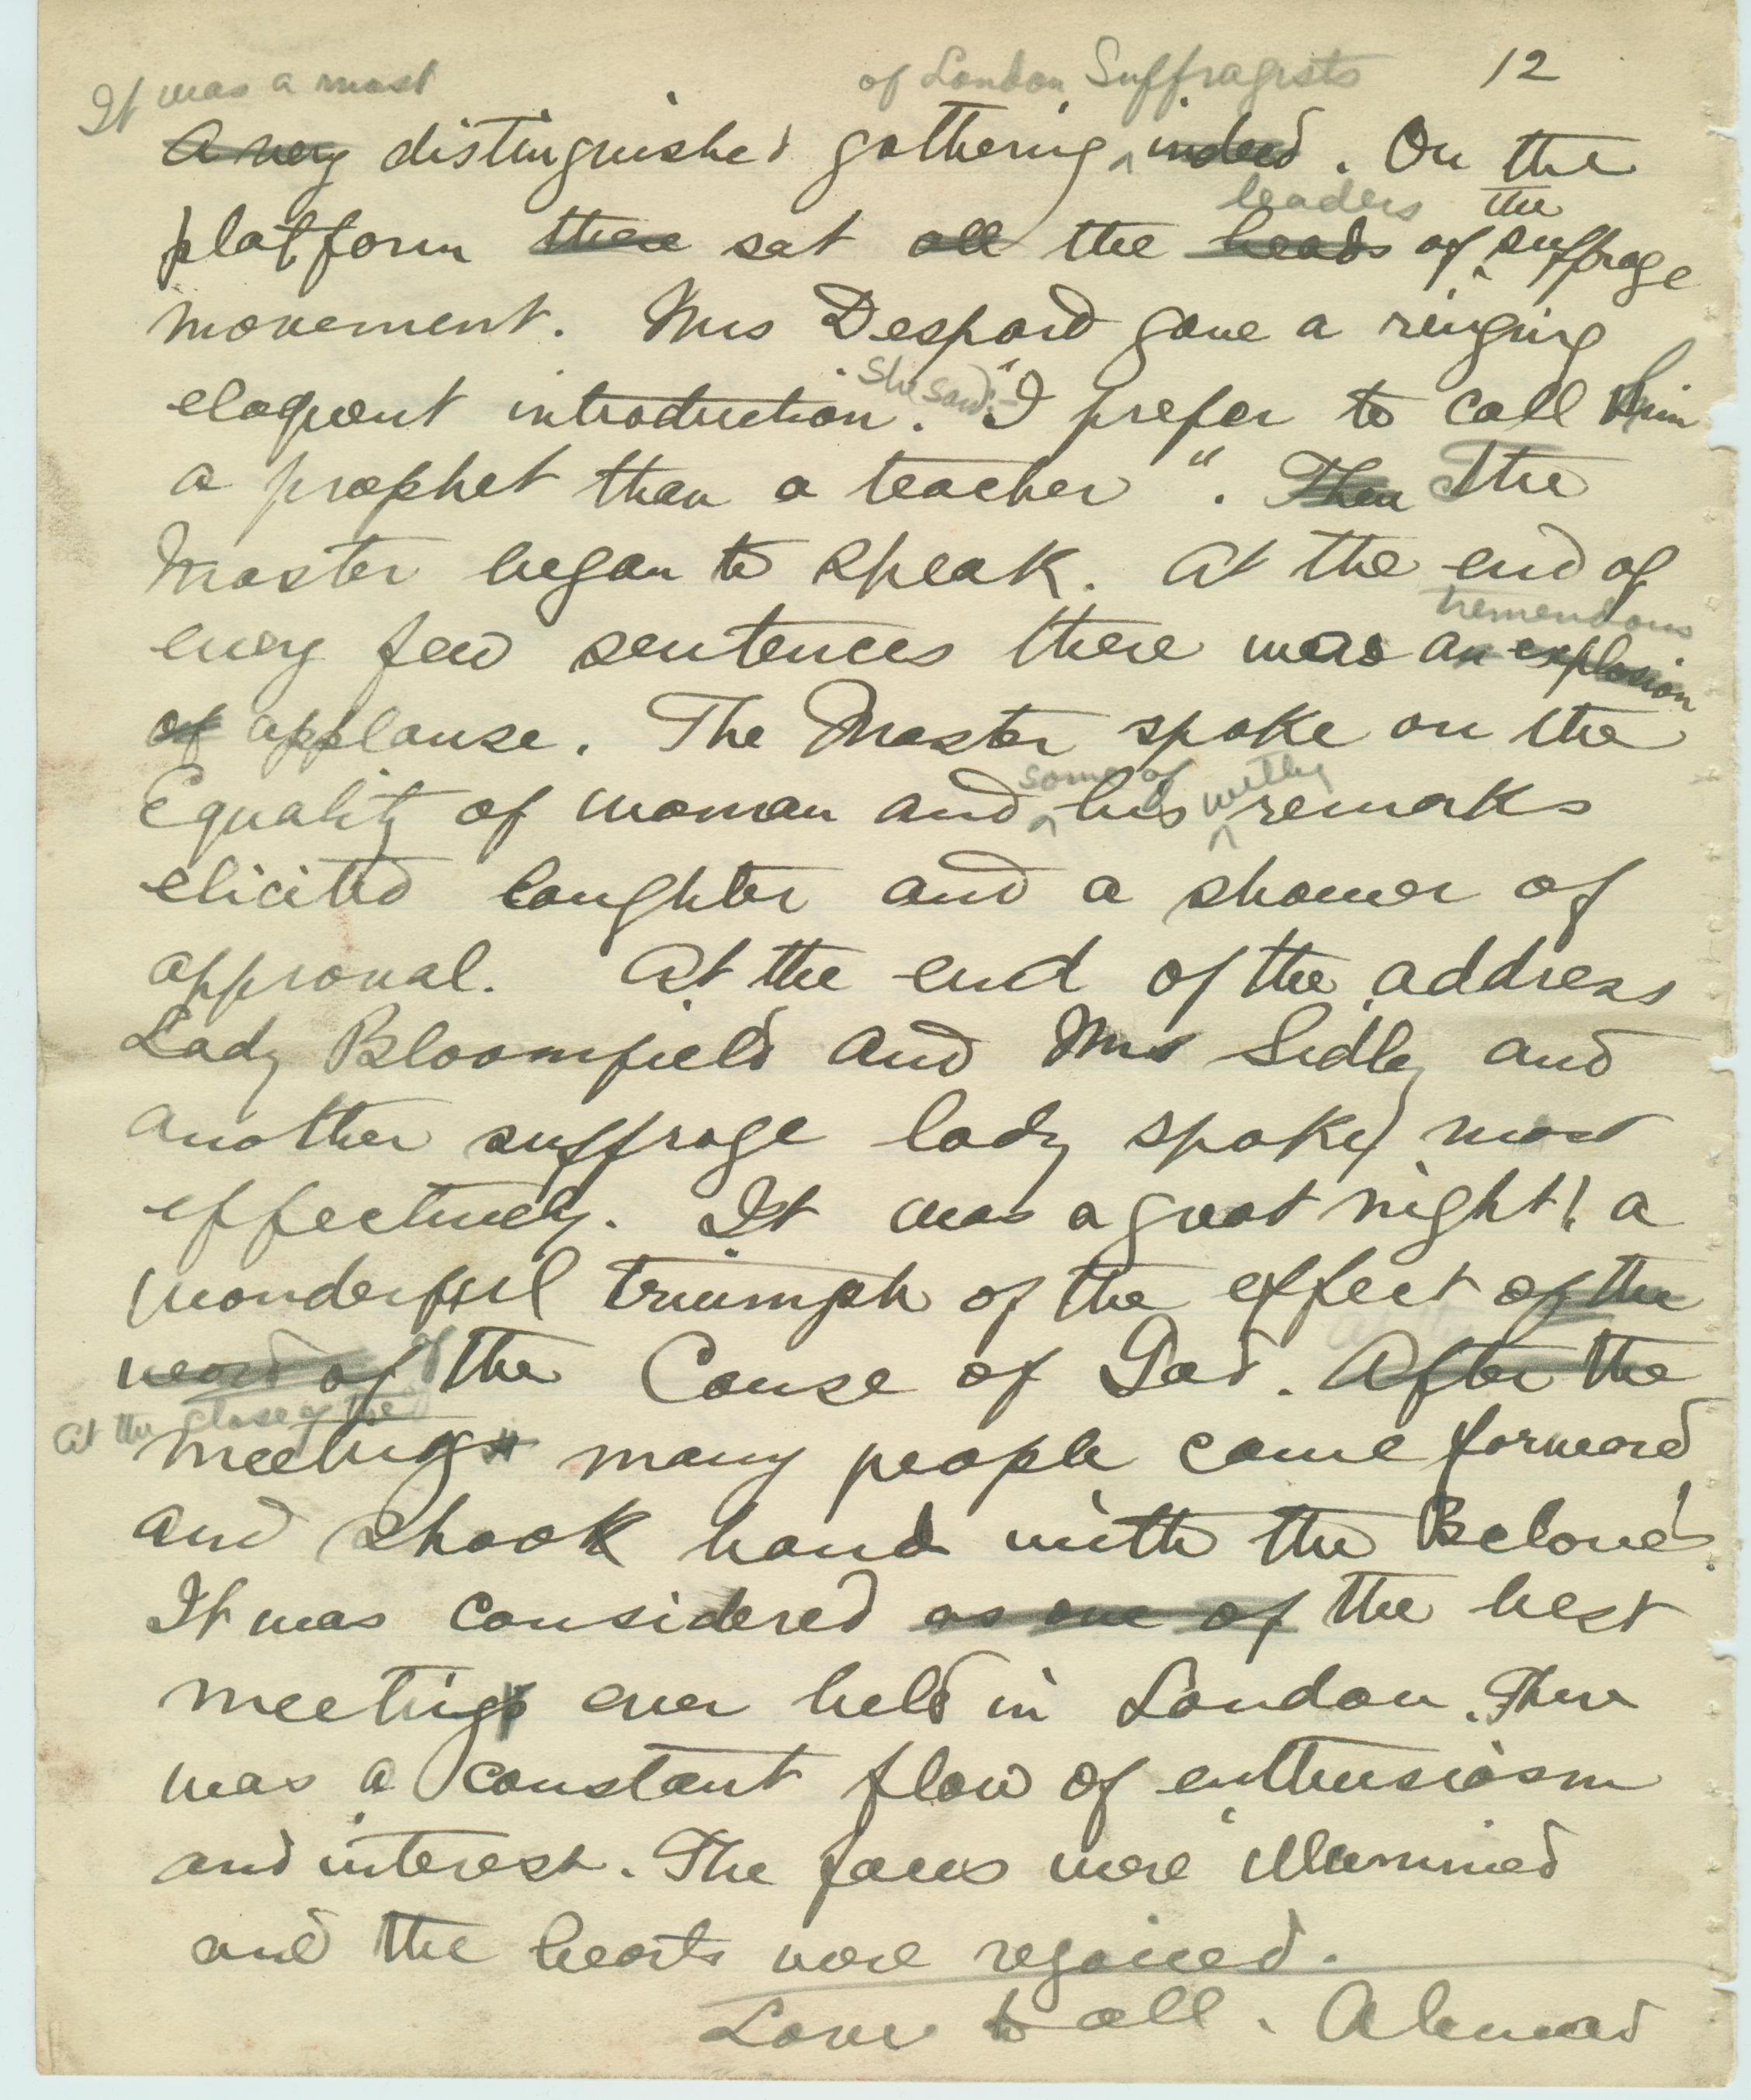 12
It was a most of London Suffragists
A very distinguished gathering indeed. On the
leaders the
platform there sat all the heads of suffrage
movement. Mrs Despard gave a ringing
She said:-
eloquent introduction. "I prefer to call him
a prophet than a teacher". Then The
Master began to speak. At the end of
tremendous
every few sentences there was an explosion
of applause. The Master spoke on the
some of witty
Equality of woman and his remarks
elicited laughter and a shower of
approval. At the end of the address
Lady Bloomfield and Mrs Sidley and
another suffrage lady spoke most
effectively. It was a great night! a
wonderful triumph of the effect of the
of
word of the Cause of God. After the
At the close of the
meeting many people came forward
and shook hand with the Beloved.
It was considered as one of the best
meeting ever held in London. There
was a constant flow of enthusiasm
and interest. The faces were illumined
and the hearts were rejoiced.
Love to all. Ahmad